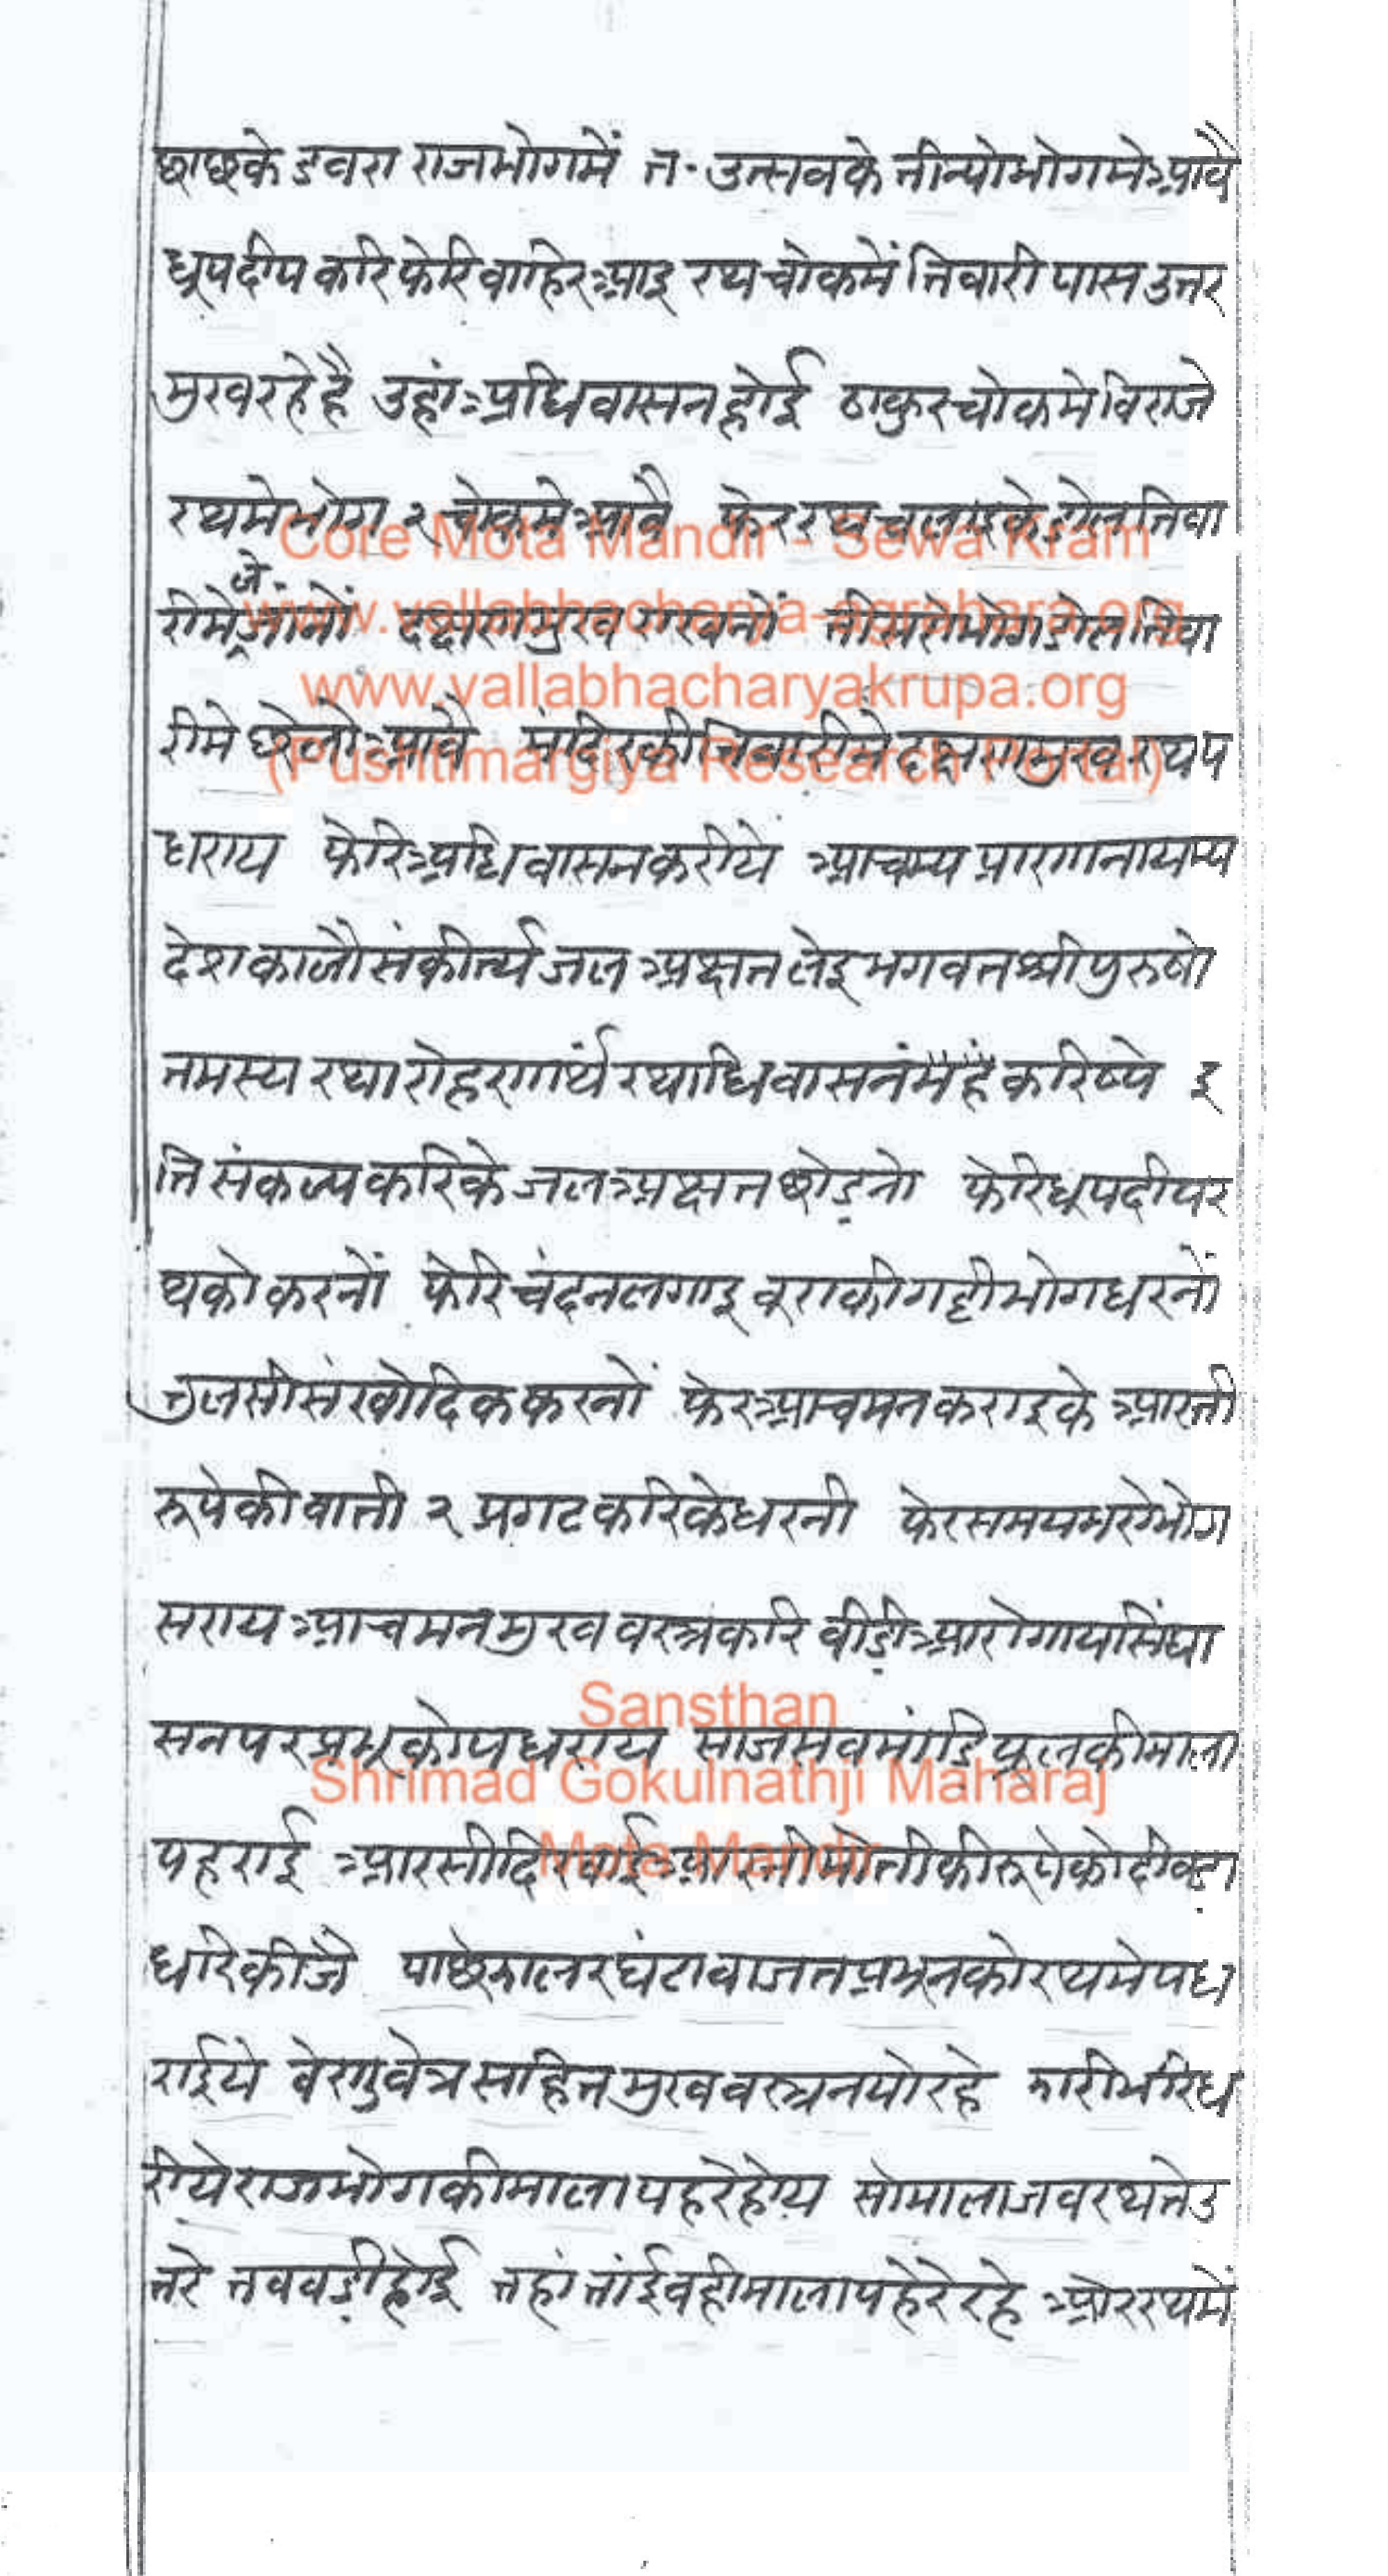 छाछके डबरा राजभोगमें त. उत्सवके तीन्योभोगमेआवै
धूपदीप करि फेरि वाहिरआइ रथ चोकमें तिवारी पास उत्तर
मुखरहेहै उहांअधिवासनहोई ठाकुरचोकमेविराजे
रथमेभोग २ चोकमेआवै फेररथचलाइकेडोलतिवा
रीमेजेजांनों दक्षणमुखराखनों तीसरोभोगडोलतिवा
रीमे छेलोआवै मंदिरकीतिवारीमेदक्षणमुखरथप
धराय फेरिअधिवासनकरीये आचम्य प्राणानायम्य
देशकालौसंकीर्त्य जलअक्षतलेइभगवतश्रीपुरुषो
तमस्य रथारोहणार्थं रथाधिवासनंमहं करिष्ये इ
ति संकल्पकरिके जलअक्षतछोड़नो फेरिधूपदीपर
थको करनों फेरि चंदनलगाइ बूराकीगट्टीभोगधरनों
तुलसीसंखोदिककरनों फेरआचमनकराइके आरती
रूपेकीवाती २ प्रगटकरिकेधरनी फेरसमयभरेभोग
सरायआचमनमुखवस्त्रकरि बीड़ीआरोगायसिंघा
सनपरप्रभूकोपधराय साजसवमांडि फूलकीमाला
पहराई आरसीदिखाईआरतीमोतीकीरूपेकोदीवडा
धरिकीजै पाछेझालरघंटावाजतप्रभूनकोरथमेपध
राईये वेणुवेत्रसहितमुखवस्त्रनयोरहे झारीभरिध
रीयेराजभोगकीमालापहरेहोय सोमालाजवरथतेउ
तरे तववड़ीहोई तहांतांईवहीमालापहेरेरहे ओररथमें
Core Mota Mandir - Sewa Kram
www.vallabhacharya-agrahara.org
www.vallabhacharyakrupa.org
(Pushtimargiya Research Portal)
Sansthan
Shrimad Gokulnathji Maharaj
Mota Mandir